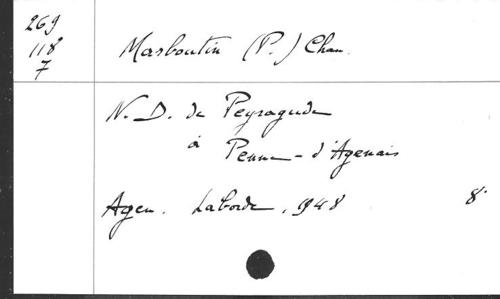 269
118
7
Marboutin (P.) Chan.
N. D. de Peyragude
à
Penne-d'Agenais
Agen. Laborde, 948 8°